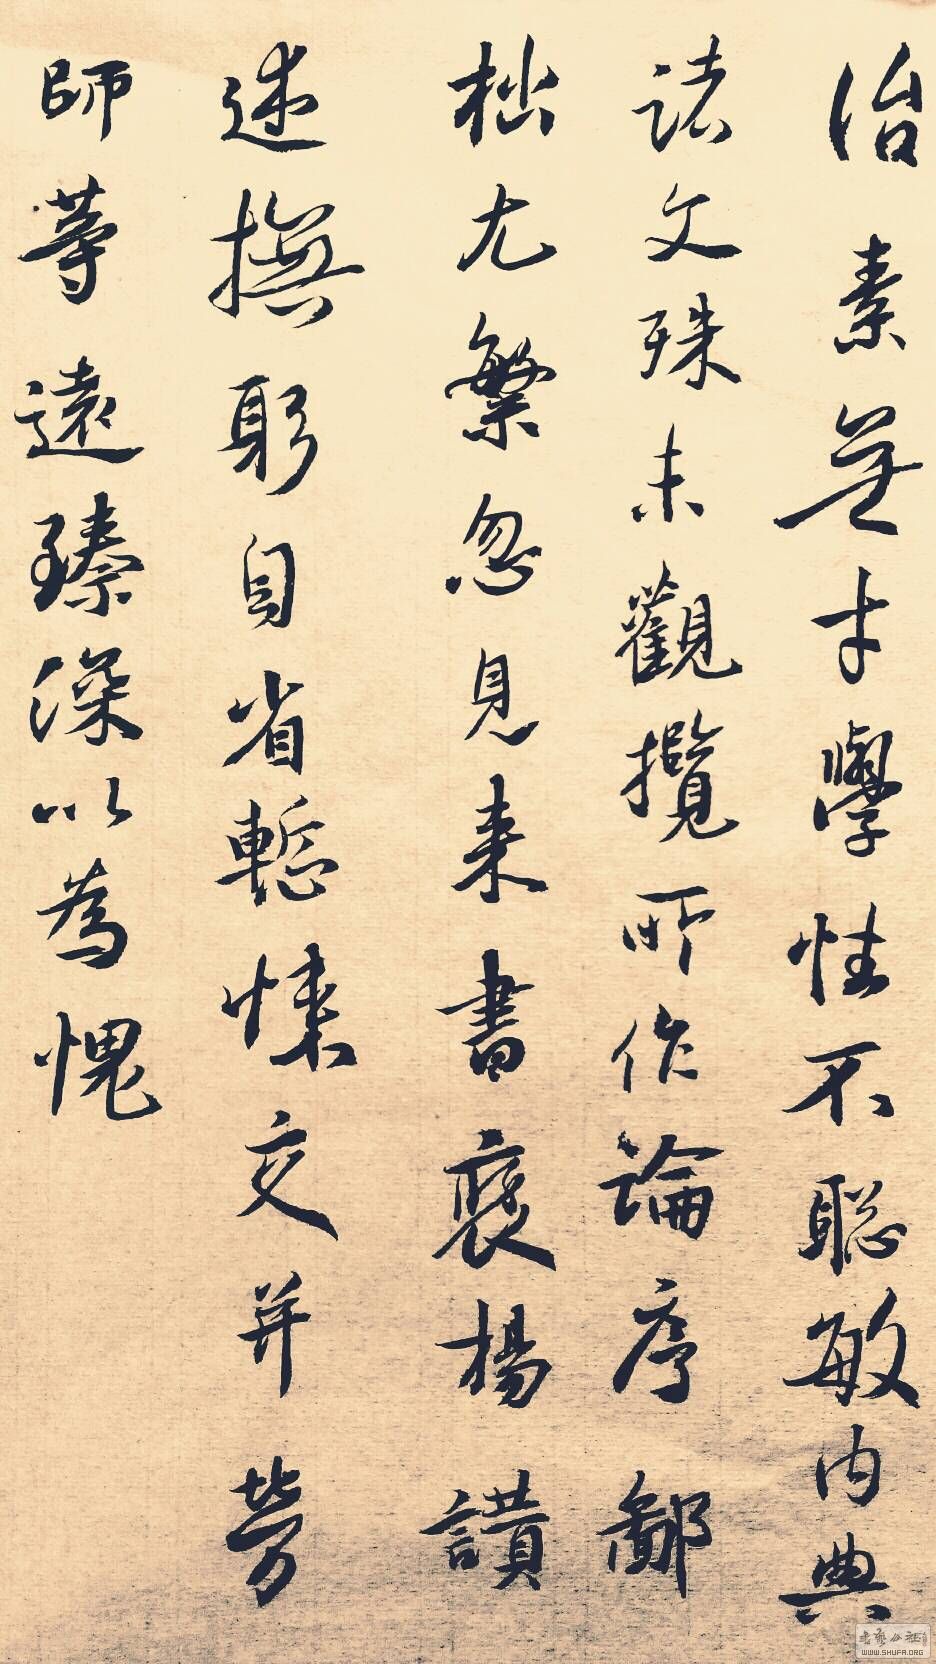 治素無才學性不聡敏内典
諸文殊未觀攬所作論序鄙
拙尤繁忽見来書褒楊讃
述撫躬自省慙悚交并勞
師等遠臻深以為愧
WWW.SHUFA.ORG